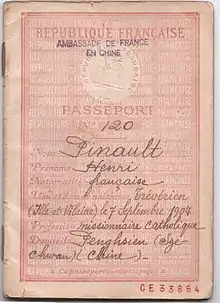 RÉPUBLIQUE FRANÇAISE
AMBASSADE DE FRANCE
EN CHINE
PASSEPORT
N° 120
Nom Pinault
Prénoms Henri
Nationalité française
Trévérien
(Ille-et-Vilaine) le 7 Septembre 1904
Profession missionnaire catholique
Domicile Penghsien (Sze-
chwan) (Chine)
CE33864